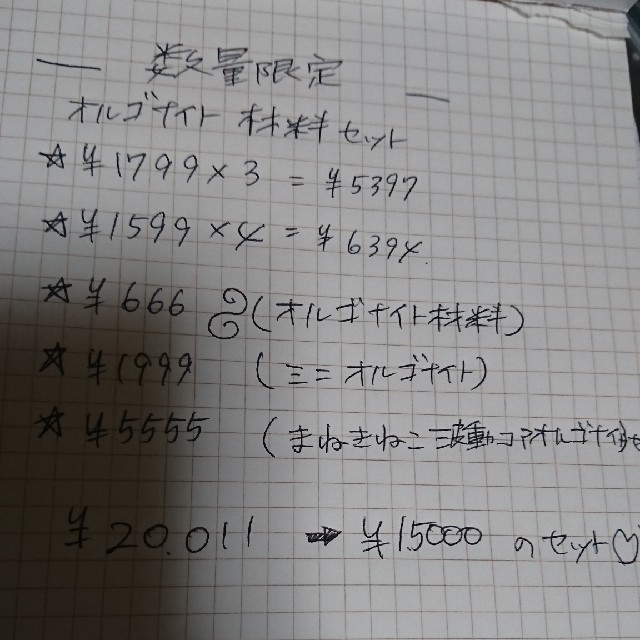 数量限定
オルゴナイト 材料セット
☆ ¥1799×3 = ¥5397
☆ ¥1599×4 = ¥6394
☆ ¥666 (オルゴナイト材料)
☆ ¥1999 (ミニオルゴナイト)
☆ ¥5555 (まねきねこ オルゴナイト
¥20.011 → ¥15000 のセット♡